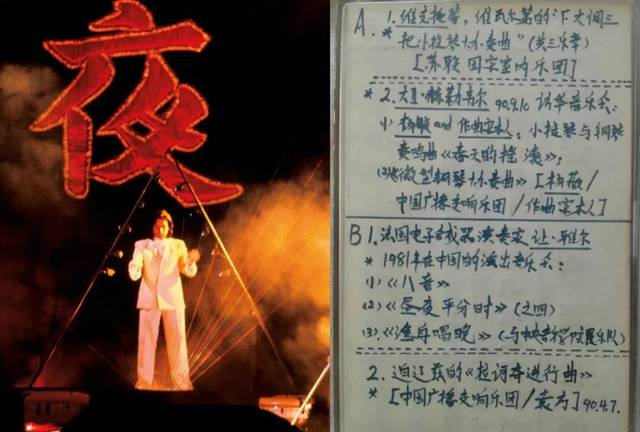 夜
A. 1. 维瓦尔第的“F大调三
* 把小提琴协奏曲”(共三乐章)
[苏联国家室内乐团]
* 2. 访华音乐会:
(1) 杨敏 and 作曲家本人, 小提琴与钢琴
奏鸣曲《春天的摇滚》;
(2)《微型钢琴协奏曲》[杨敏/
中国广播交响乐团/作曲家本人]
B 1. 法国电子合成器演奏家 让·雅尔
* 1981年在中国的演出音乐会:
(1)《八音》
(2)《昼夜平分时》(之四)
(3)《渔舟唱晚》(与中央音乐学院民乐队)
2. 迫辽兹的《拉诃奇进行曲》
* [中国广播交响乐团/袁方] 90.4.7.